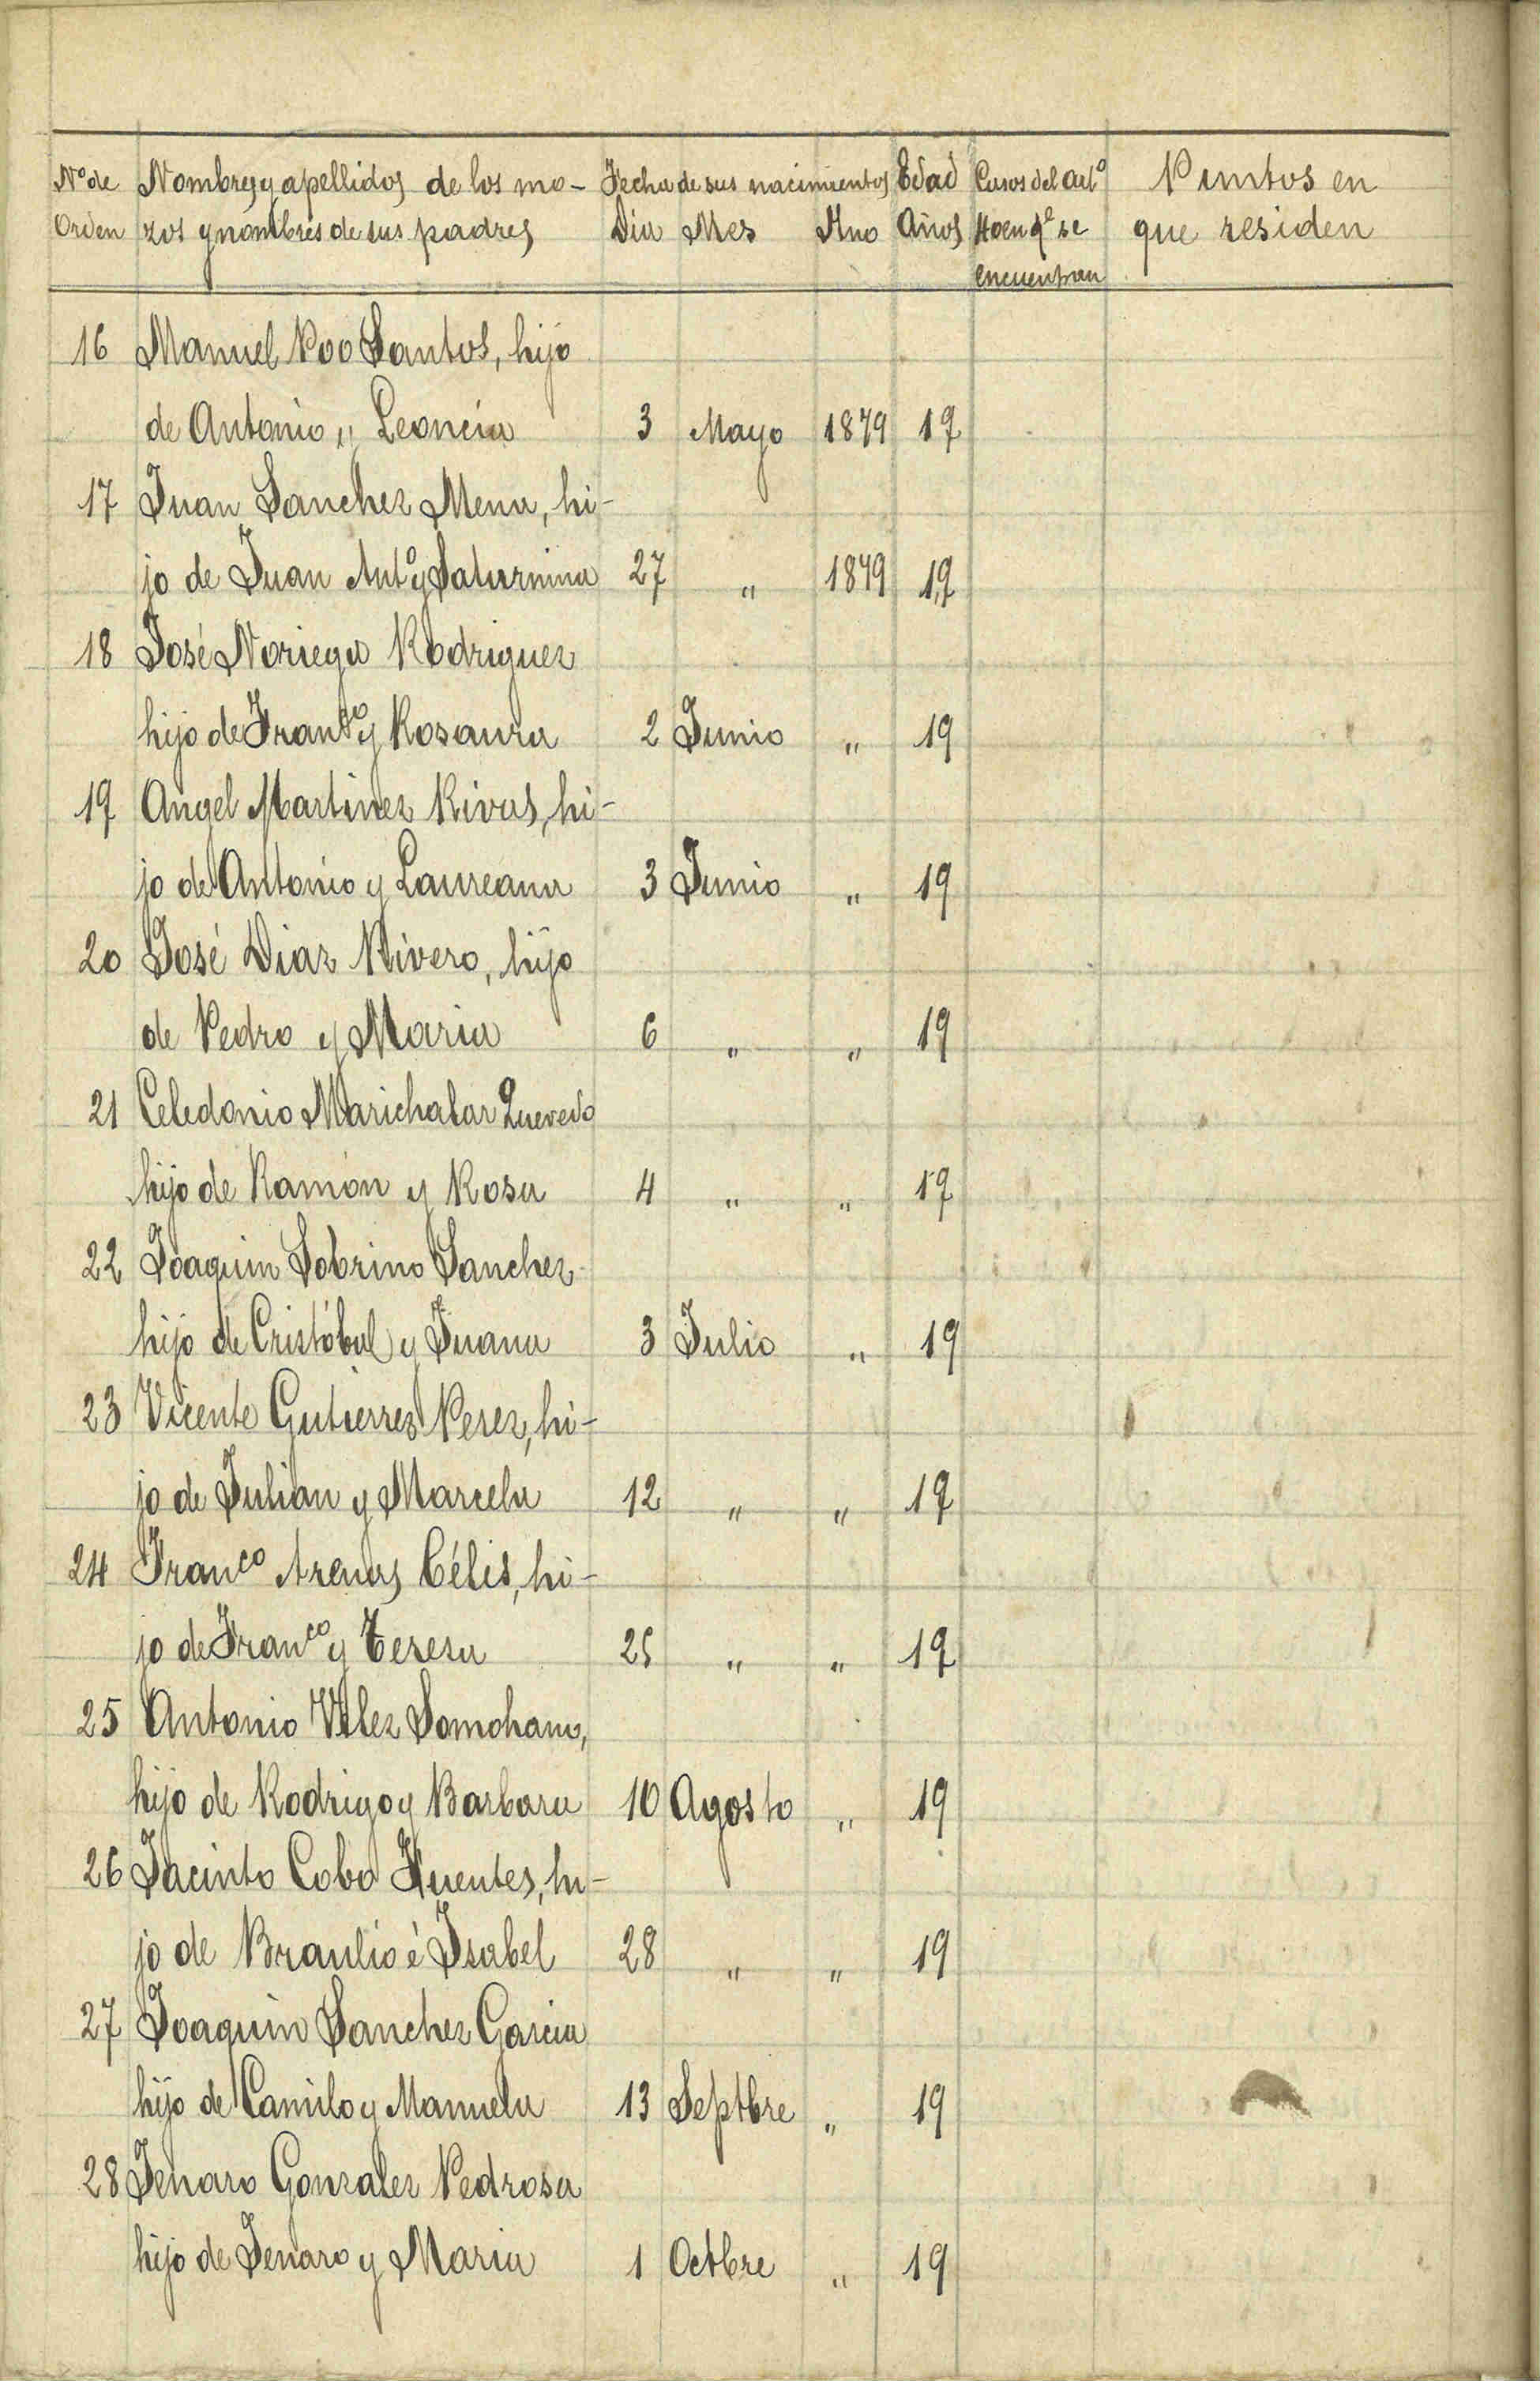 Nº de Nombres y apellidos de los mo- Fecha de sus nacimientos Edad Casos del artº Puntos en
Orden zos y nombres de sus padres Dia Mes Año Años 40 en qº se que residen
encuentran
16 Manuel Poo Santos, hijo
de Antonio y Leoncia 3 Mayo 1879 19
17 Juan Sanchez Mena, hi-
jo de Juan Antº y Saturnina 27 " 1879 19
18 José Noriega Rodriguez
hijo de Franᶜº y Rosaura 2 Junio " 19
19 Angel Martinez Rivas, hi-
jo de Antonio y Laureana 3 Junio " 19
20 José Diaz Rivero, hijo
de Pedro y Maria 6 " " 19
21 Celedonio Marichalar Quevedo
hijo de Ramón y Rosa 4 " " 19
22 Joaquin Sobrino Sanchez
hijo de Cristóbal y Juana 3 Julio " 19
23 Vicente Gutierrez Perez, hi-
jo de Julian y Marcela 12 " " 19
24 Franᶜº Arenas Célis, hi-
jo de Franᶜº y Teresa 25 " " 19
25 Antonio Velez Somohano,
hijo de Rodrigo y Barbara 10 Agosto " 19
26 Jacinto Cobo Fuentes, hi-
jo de Braulio é Isabel 28 " " 19
27 Joaquin Sanchez Garcia
hijo de Camilo y Manuela 13 Septbre " 19
28 Jenaro Gonzalez Pedrosa
hijo de Jenaro y Maria 1 Octbre " 19